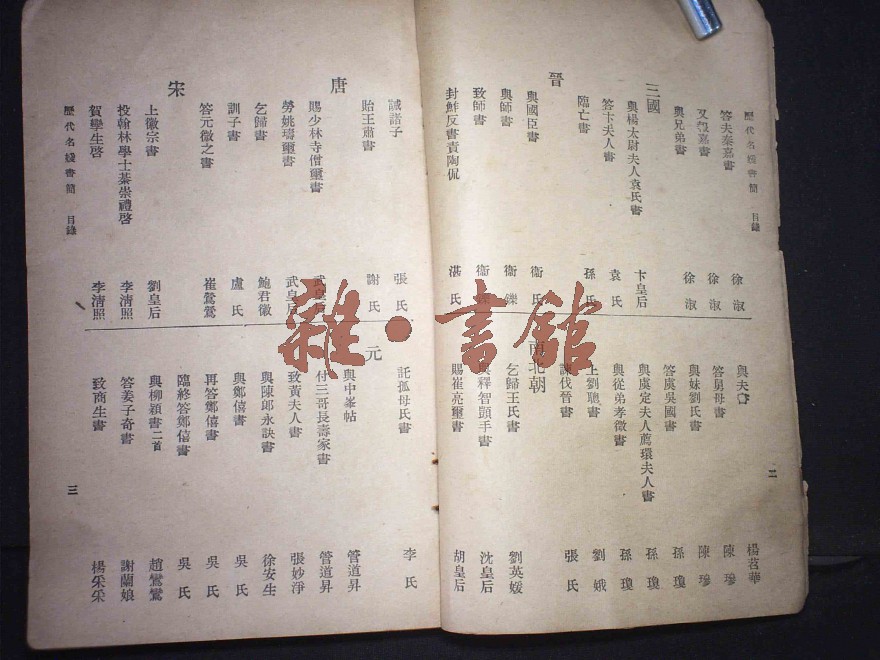 歷代名媛書簡 目錄 二
答夫秦嘉書 徐淑
又報嘉書 徐淑
與兄弟書 徐淑
三國
與楊太尉夫人袁氏書 卞皇后
答卞夫人書 袁氏
臨亡書 孫氏
晉
與國臣書 衞氏
與師書 衞鑠
致師書 衞
封鮓反書責陶侃 湛氏
與夫書 楊苕華
答舅母書 陳
與妹劉氏書 陳
答虞吳國書 孫瓊
與虞定夫人薦環夫人書 孫瓊
與從弟孝徵書 孫瓊
上劉聰書 劉娥
諫伐晉書 張氏
南北朝
乞歸王氏書 劉英媛
與釋智顗手書 沈皇后
賜崔亮璽書 胡皇后
誡諸子 張氏
貽王肅書 謝氏
唐
賜少林寺僧璽書 武皇后
勞姚璹璽書 武皇后
乞歸書 鮑君徽
訓子書 盧氏
答元微之書 崔鶯鶯
宋
上徽宗書 劉皇后
投翰林學士綦崇禮啓 李清照
賀孿生啓 李清照
託孤母氏書 李氏
元
與中峯帖 管道昇
付三哥長壽家書 管道昇
致黃夫人書 張妙淨
與陳郎永訣書 徐安生
與鄭僖書 吳氏
再答鄭僖書 吳氏
臨終答鄭僖書 吳氏
與柳穎書二首 趙鸞鸞
答姜子奇書 謝蘭娘
致商生書 楊采采
歷代名媛書簡 目錄 三
雜·書館